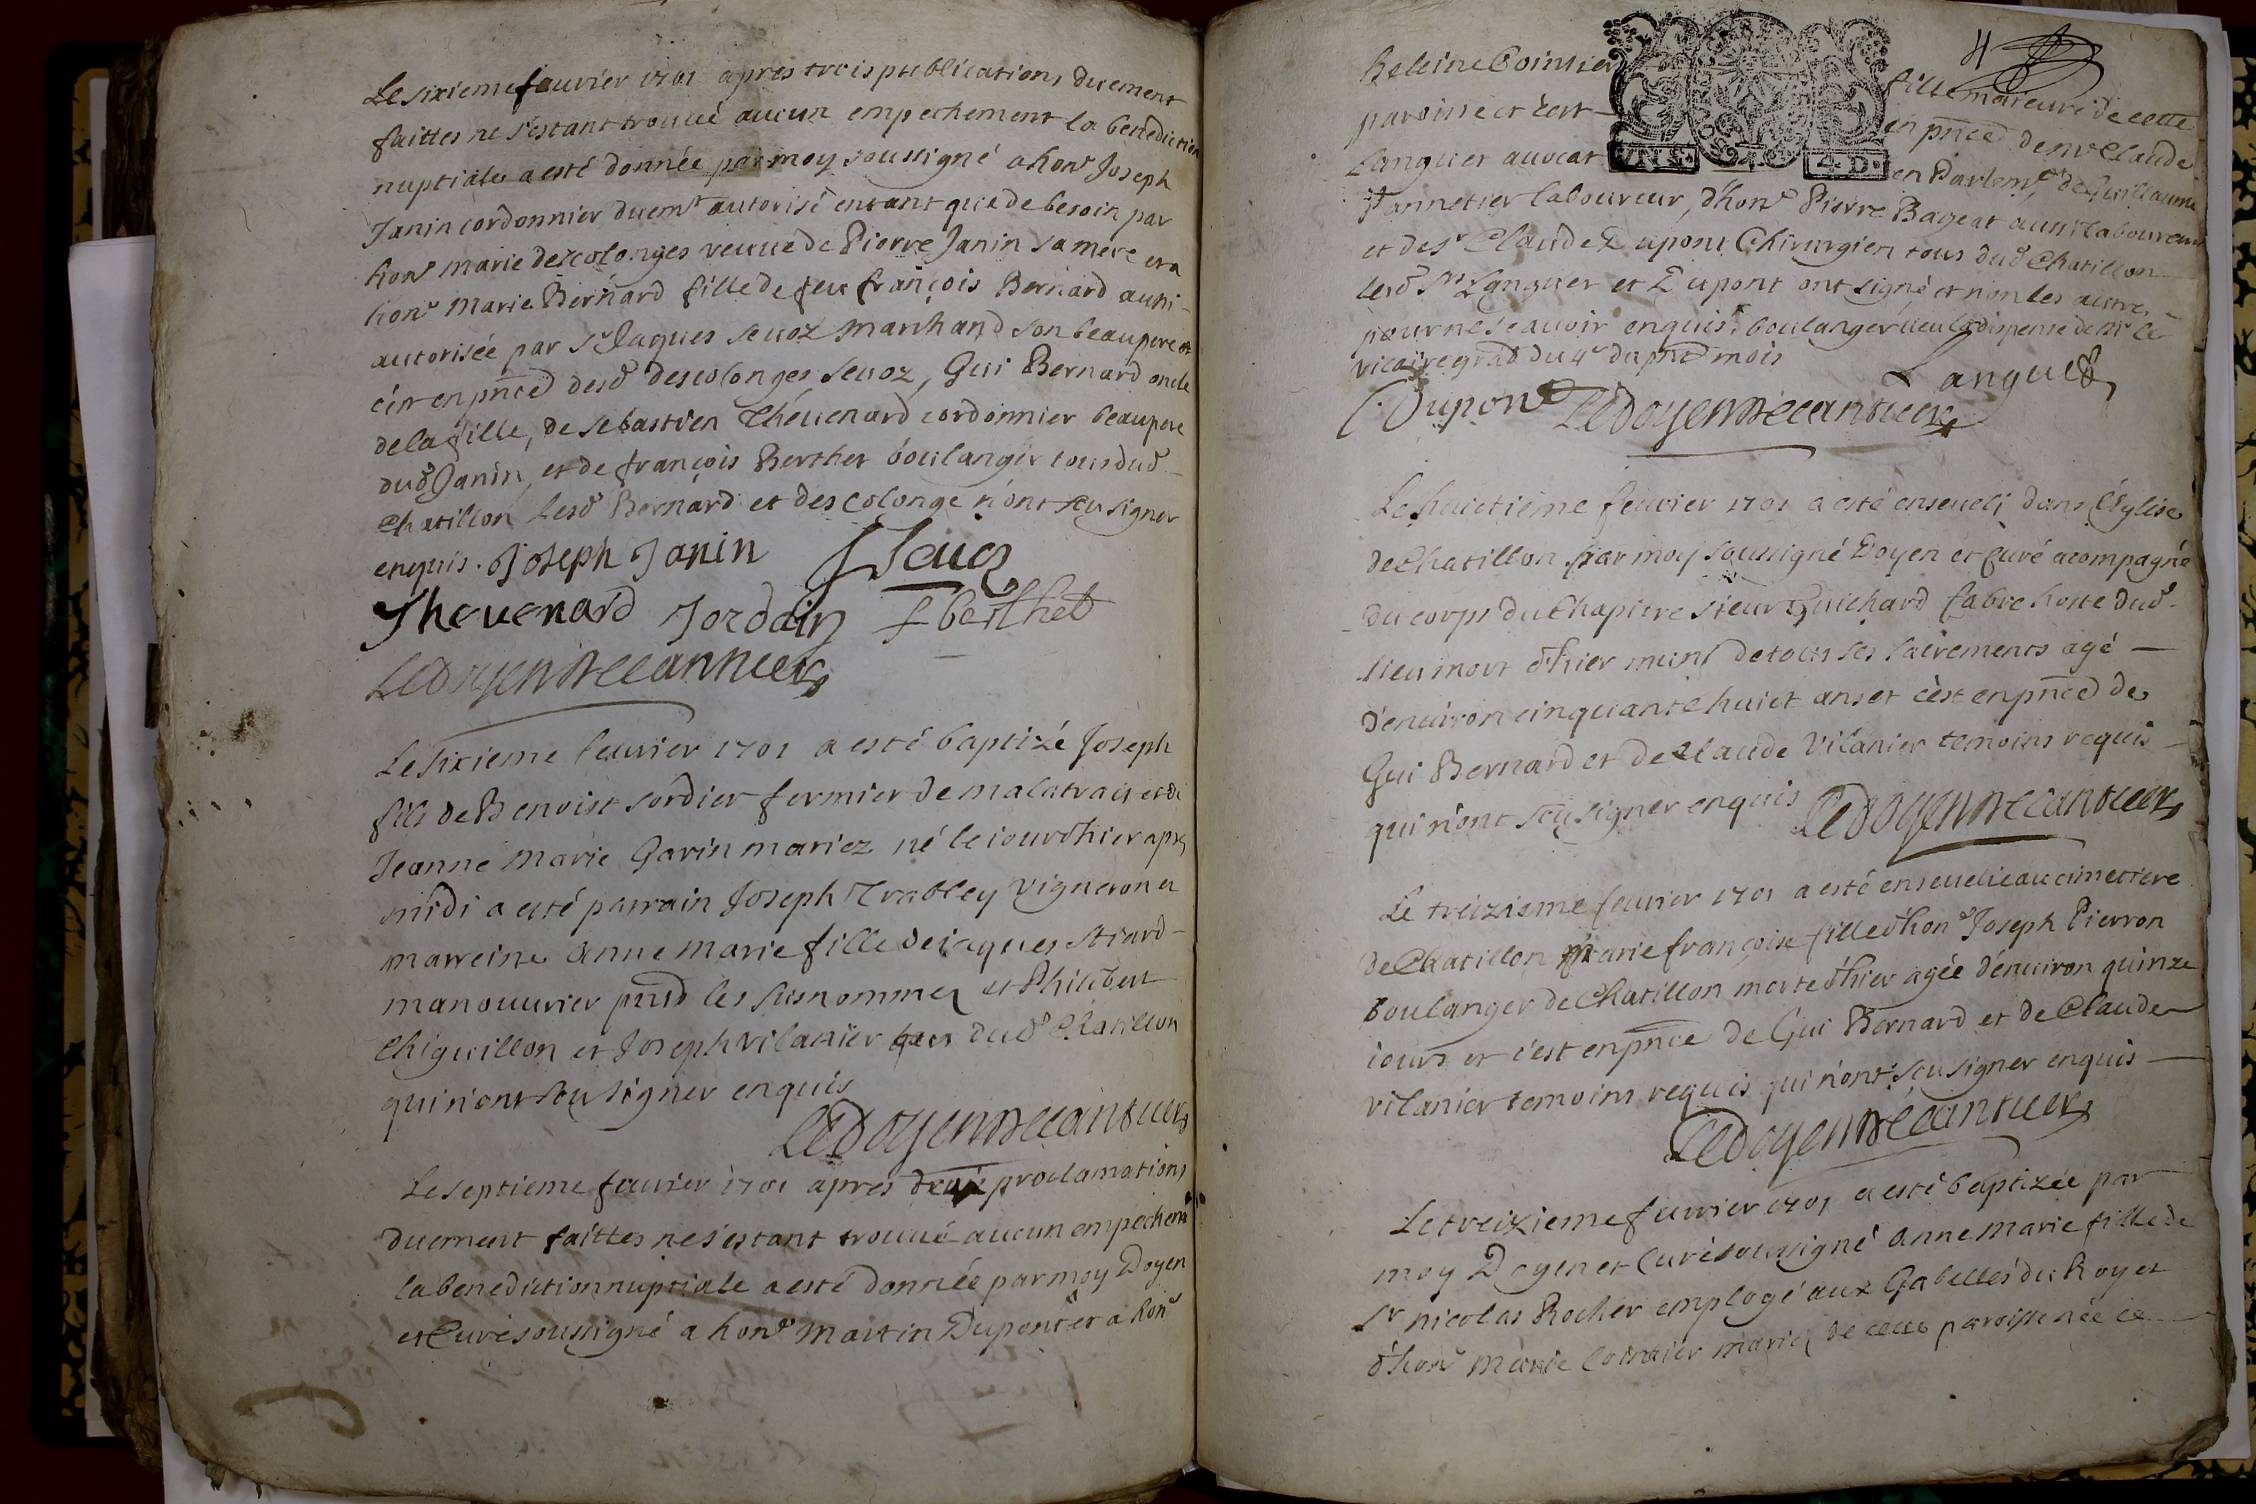 Le sixieme feuvrier 1701 apres trois publications duement
faittes ne s'estant trouvé aucun empechement la benediction
nuptiale a esté donnée par moy soussigné a honᵉ Joseph
Janin cordonnier duemᵗ autorisé entant que de besoin par
honᵉ marie descolonges veuve de Pierre Janin sa mere et a
honᵉ Marie Bernard fille de feu françois Bernard aussi
autorisée par sʳ Jaques seuoz marchand son beaupere et
c'est en pnce desd descolonges, seuoz, Gui Bernard oncle
de la fille, de sebastien Théuenard cordonnier beaupere
dud Janin, et de françois Berthet boulanger tous dud
Chatillon lesd Bernard et descolonge n'ont scu signer
enquis. Joseph Janin J Seuoz
Theuenard Jordain f berthet
Le Doyen
Le sixieme feuvrier 1701 a esté baptizé Joseph
fils de Benoist sordier fermier de malatrait et de
Jeanne Marie Garin mariez né le iour d'hier apres
midi a esté parrain Joseph Trabley vigneron et
marreine Anne Marie fille de iaques
manouvrier pnts les susnommez et Philibert
Chiguillon et Joseph vilanier dud Chatillon
qui n'ont scu signer enquis
Le Doyen
Le septieme feuvrier 1701 apres deux proclamations
duement faittes ne s'estant trouué aucun empechemᵗ
la benediction nuptiale a esté donnée par moy Doyen
et Curé soussigné a honᵉ Martin Dupont et a honᵉ
4
heleine Cointier fille maieure de cette
paroisse et c'est en pnce de mʳ Claude
Languet avocat en Parlemᵗ, de Guillaume
Pannetier laboureur, d'honᵉ Pierre Bageat aussi laboureur
et de sʳ Claude Dupont Chirurgien tous dud Chatillon
lesd sʳˢ Languet et Dupont ont signé et non les autres
pour ne scauoir enquis, veu la dispense de mʳ le
vicaire gnal du 4ᵉ du pnt mois
Languet
Dupont Le Doyen
Le huictieme feuvrier 1701 a esté enseueli dans l'Eglise
de Chatillon par moy soussigné Doyen et Curé acompagné
du corps du Chapitre sieur Guichard fabre hoste dud
lieu mort d'hier muni de tous ses sacrements agé
d'enuiron cinquante huict ans et c'est en pnce de
Gui Bernard et de Claude Vilanier temoins requis
qui n'ont scu signer enquis Le Doyen
Le treizieme feuvrier 1701 a esté enseuelie au cimettiere
de Chatillon Marie françoise fille d'honᵉ Joseph Pierron
boulanger de Chatillon morte d'hier agée d'enuiron quinze
iours et c'est en pnce de Gui Bernard et de Claude
vilanier temoins requis qui n'ont scu signer enquis
Le Doyen
Le treizieme feuvrier 1701 a esté baptizée par
moy Doyen et Curé soussigné Anne Marie fille de
sʳ nicolas Rocher employé aux Gabelles du Roy et
d'honᵉ Marie Cointier mariez de cette paroisse née le